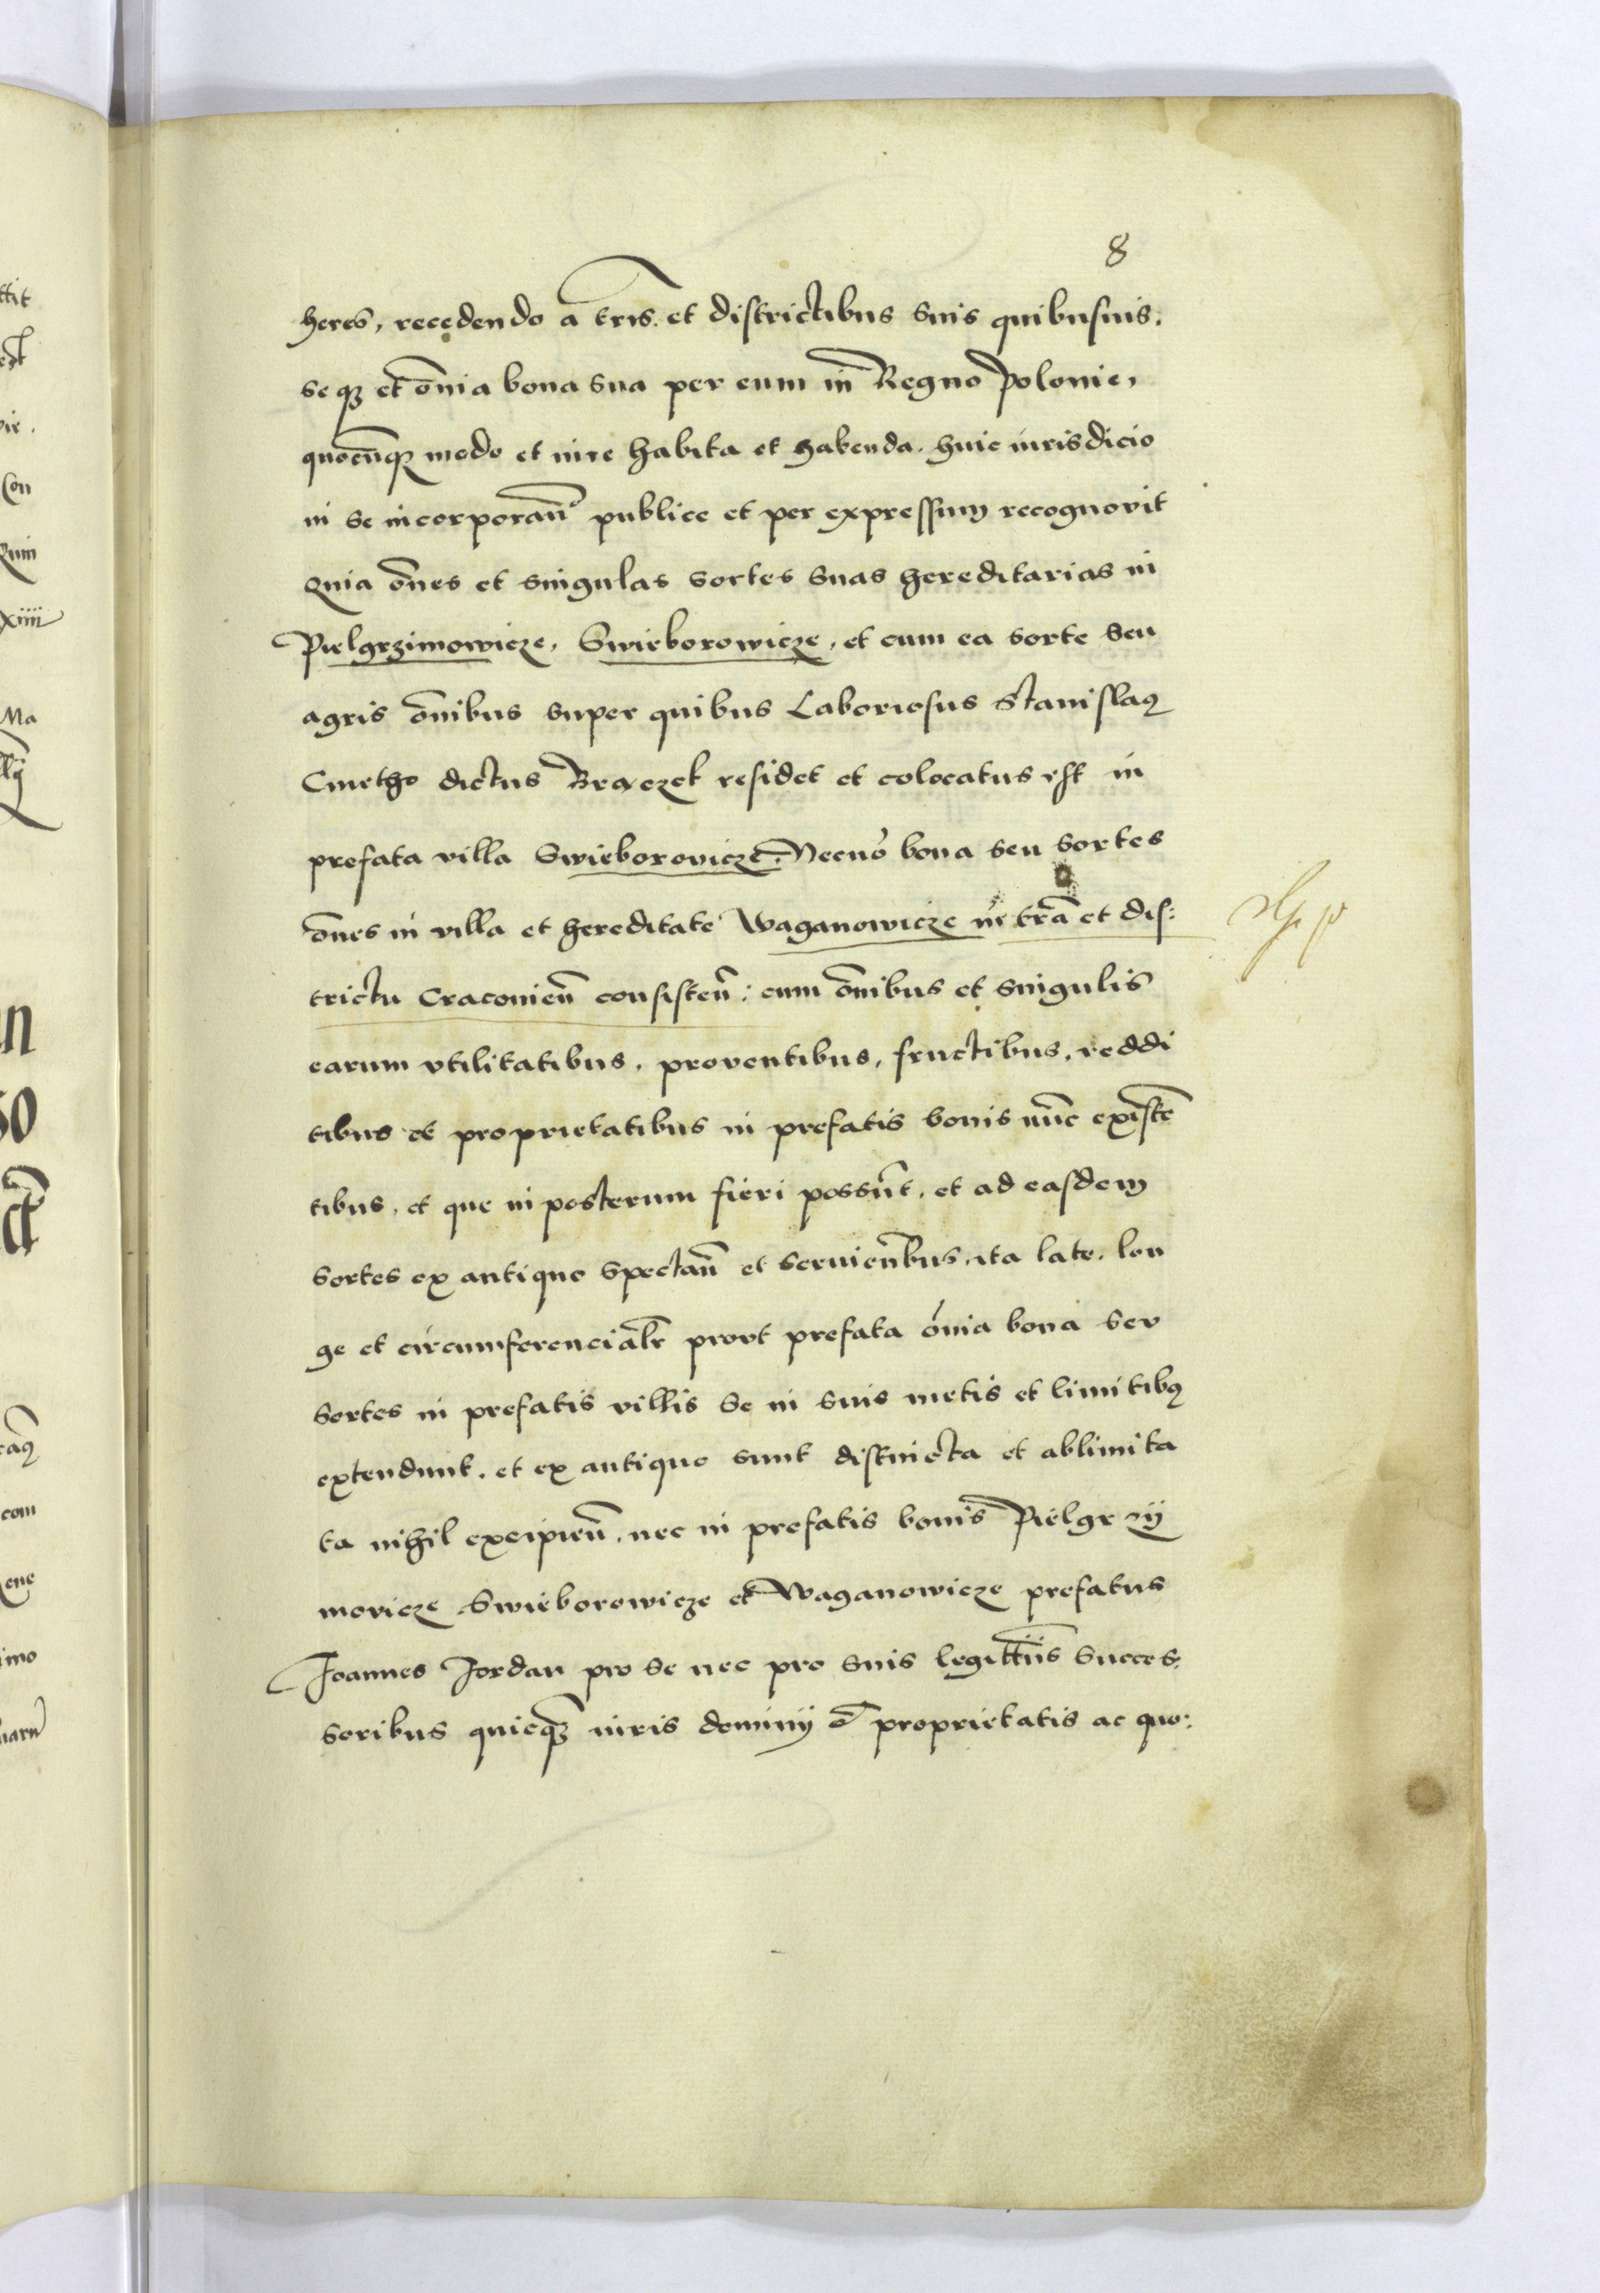 8
heres, recedendo a tris. et districtibus suis quibusuis.
se qꝫ et oı̄a bona sua per eum in Regno Polonie,
quocūqꝫ modo et iure habita et habenda. huic iurisdicio
ni se incorporan̄ publice et per expressum recognouit
Quia ōnes et singulas sortes suas hereditarias in
Pielgrzimowicze, Swieborowicze, et cum ea sorte seu
agris ōnibus super quibus Laboriosus Stanislaꝰ
Cmetho dictus residet et colocatus est in
prefata villa Swieborovicze. Necnō bona seu sortes
ōnes in villa et hereditate Waganowicze in trā et dis:
trictu Cracouien̄ consisten̄: cum ōnibus et singulis
earum vtilitatibus, prouentibus, fructibus, reddi
tibus et proprietatibus in prefatis bonis nūc existē
tibus, et que in posterum fieri possūt, et ad easdem
sortes ex antiquo spectan̄ et seruien̄bus, ita late, lon
ge et circumferencialr̄ provt prefata ōnia bona sev
sortes in prefatis villis se in suis metis et limitibꝰ
extendunt. et ex antiquo sunt distincta et ablimita
ta nihil excipien̄. nec in prefatis bonis Pielgrzÿ
movicze Swieborowicze et Waganowicze prefatus
Joannes Jordan pro se nec pro suis legittīis succes:
soribus quicqꝫ iuris dominij ē proprietatis ac quo: